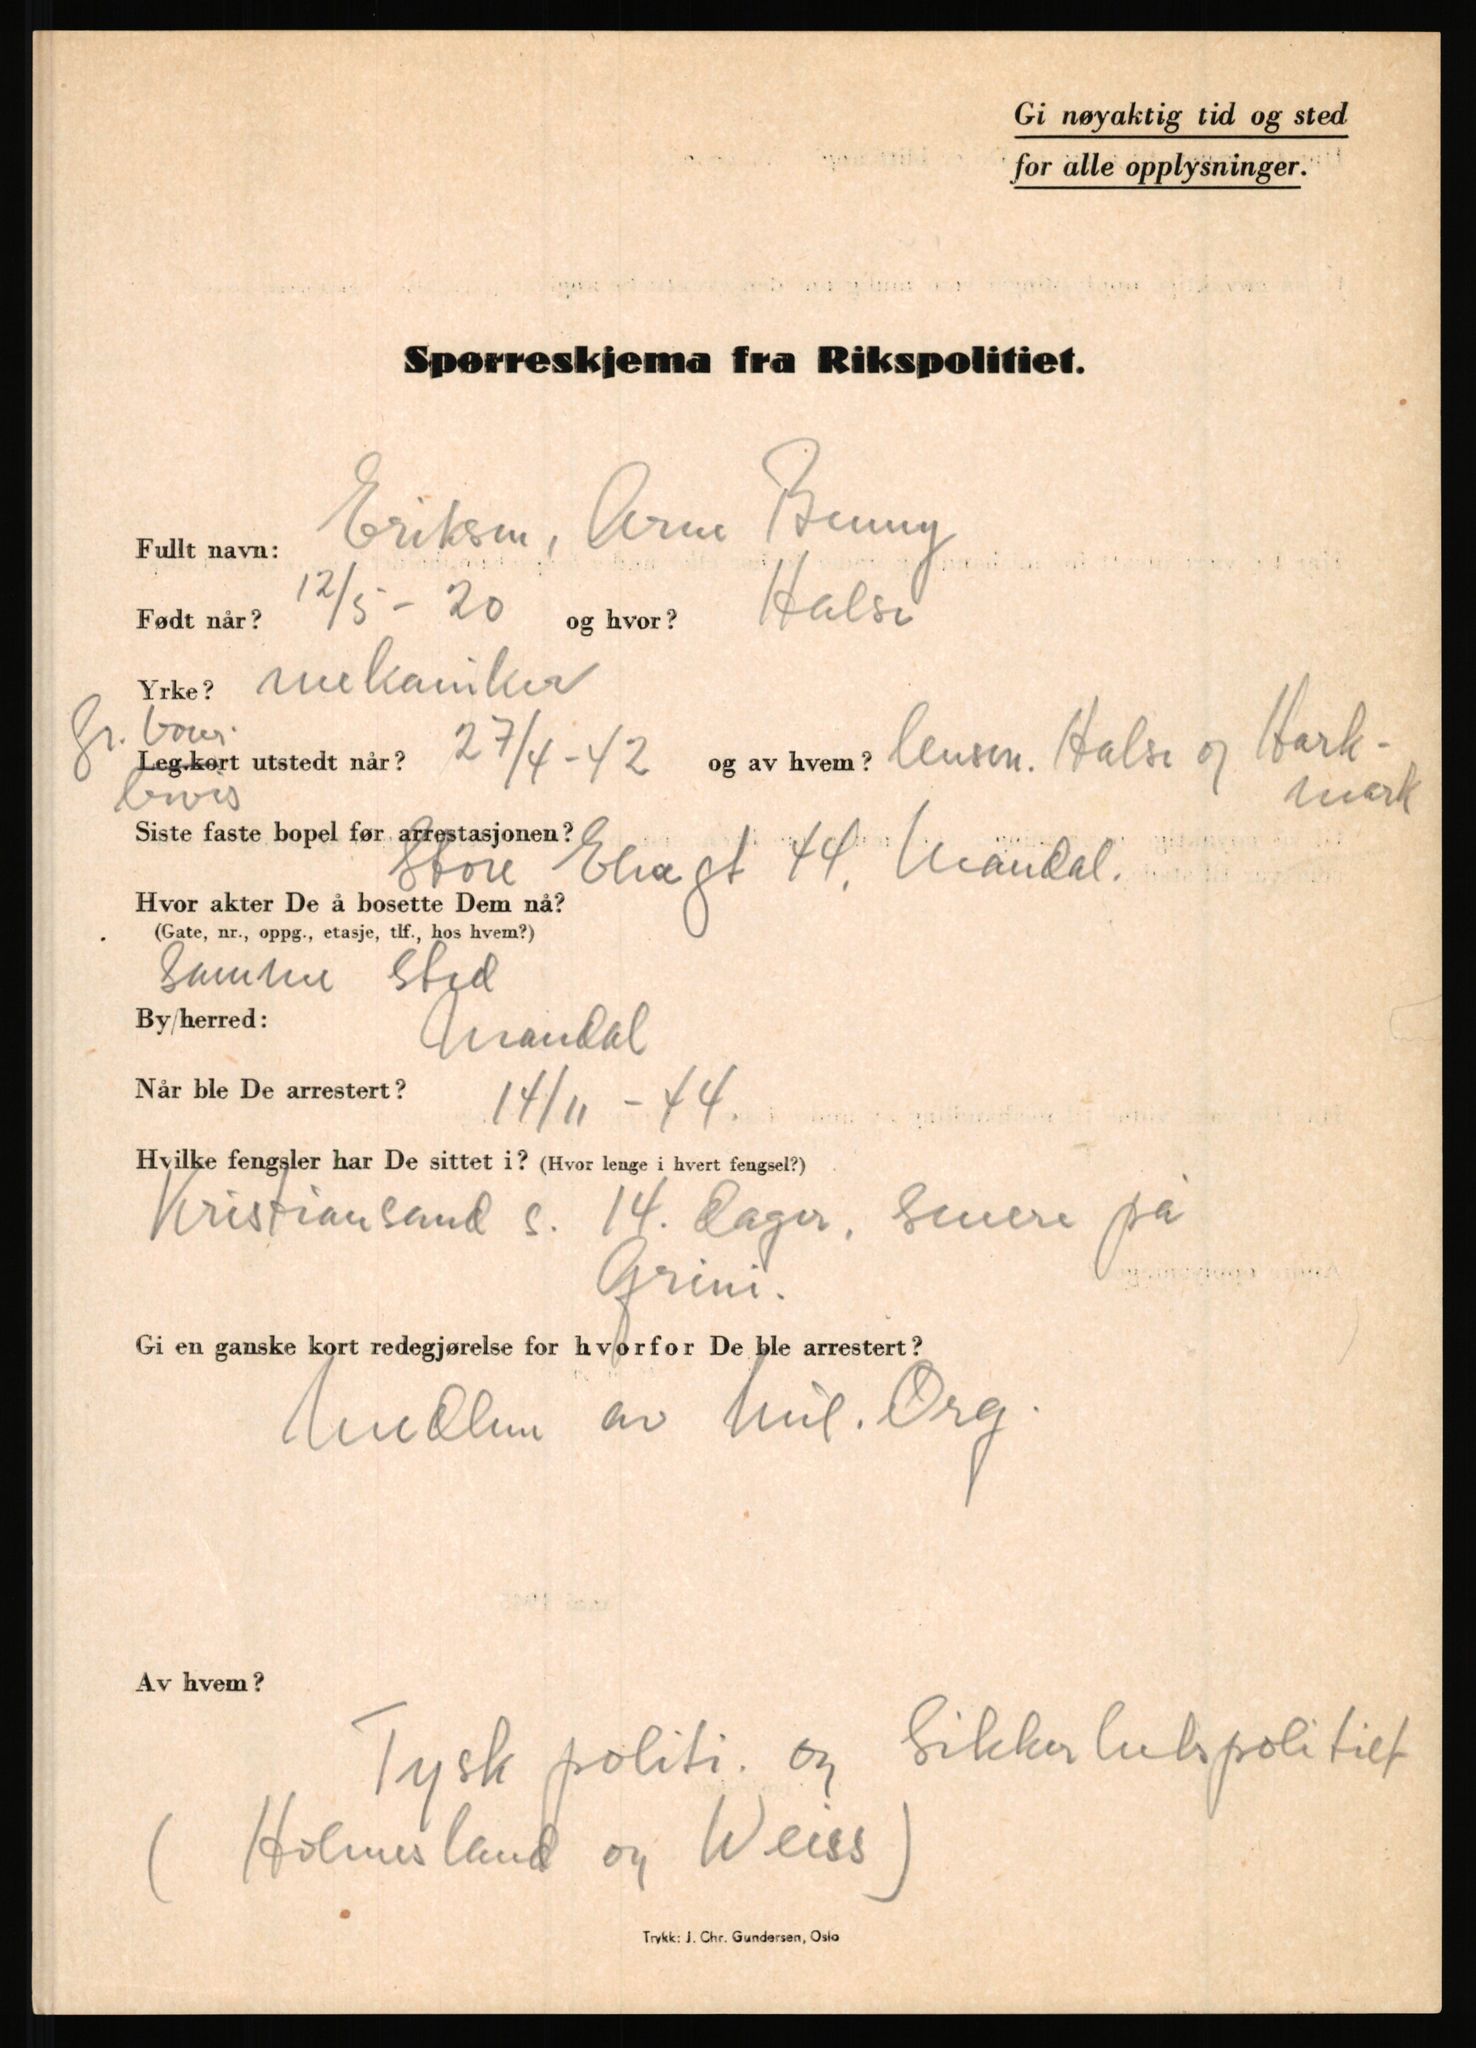 Gi nøyaktig tid og sted
for alle opplysninger.
Spørreskjema fra Rikspolitiet.
Fullt navn: Eriksen, Arne Benny
Født når? 12/5 - 20 og hvor? Halse
Yrke? mekaniker
Gr. boer.
Leg.kort utstedt når? 27/4 - 42 og av hvem? Lensm. Halse og Hark-
bevis mark
Siste faste bopel før arrestasjonen?
Store Elvegt 44, Mandal.
Hvor akter De å bosette Dem nå?
(Gate, nr., oppg., etasje, tlf., hos hvem?)
Samme sted
By/herred: Mandal
Når ble De arrestert? 14/11 - 44.
Hvilke fengsler har De sittet i? (Hvor lenge i hvert fengsel?)
Kristiansand S. 14. dager, senere på
Grini.
Gi en ganske kort redegjørelse for hvorfor De ble arrestert?
Medlem av Mil. Org.
Av hvem?
Tysk politi. og Sikkerhetspolitiet
(Holmesland og Weiss)
Trykk: J. Chr. Gundersen, Oslo